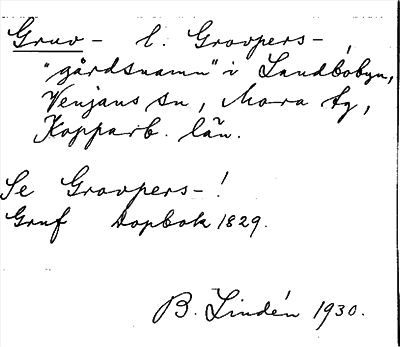 Gruv- l. Grovpers-,
"gårdsnamn" i Landbobyn,
Venjans sn, Mora tg,
Kopparb. län.
Se Grovpers-!
Gruf Dopbok 1829.
B. Lindén 1930.